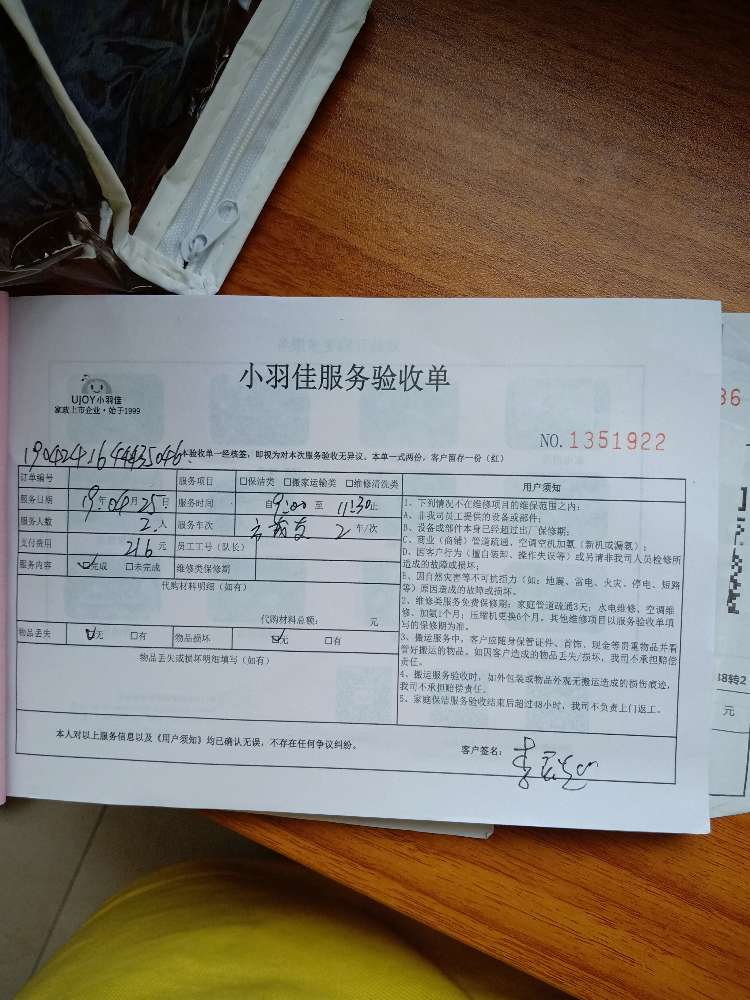 UJOY小羽佳
家政上市企业·始于1999
小羽佳服务验收单
NO.1351922
190424164435046
本验收单一经核签，即视为对本次服务验收无异议。本单一式两份，客户留存一份（红）
订单编号 服务项目 □保洁类 □搬家运输类 □维修清洗类
服务日期 19年04月25日 服务时间 自9:00至11:30止
服务人数 2人 服务车次 2车/次
支付费用 216元 员工工号（队长）
服务内容 ☑完成 □未完成 维修类保修期
代购材料明细（如有）
代购材料总额： 元
物品丢失 ☑无 □有 物品损坏 ☑无 □有
物品丢失或损坏明细填写（如有）
用户须知
1、下列情况不在维修项目的维保范围之内：
A、非我司员工提供的设备或部件；
B、设备或部件本身已经超过出厂保修期；
C、商业（商铺）管道疏通、空调空机加氨（新机或漏氨）；
D、因客户行为（擅自装卸、操作失误等）或另请非我司人员检修所
造成的故障或损坏；
E、因自然灾害等不可抗拒力（如：地震、雷电、火灾、停电、短路
等）原因造成的故障或损坏。
2、维修类服务免费保修期：家庭管道疏通3天；水电维修、空调维
修、加氨1个月；压缩机更换6个月。其他维修项目以服务验收单填
写的保修期为准。
3、搬运服务中，客户应随身保管证件、首饰、现金等贵重物品并看
管好搬运的物品。如因客户造成的物品丢失/损坏，我司不承担赔偿
责任。
4、搬运服务验收时，如外包装或物品外观无搬运造成的损伤痕迹，
我司不承担赔偿责任。
5、家庭保洁服务验收结束后超过48小时，我司不负责上门返工。
本人对以上服务信息以及《用户须知》均已确认无误，不存在任何争议纠纷。
客户签名：
36
18转2
元